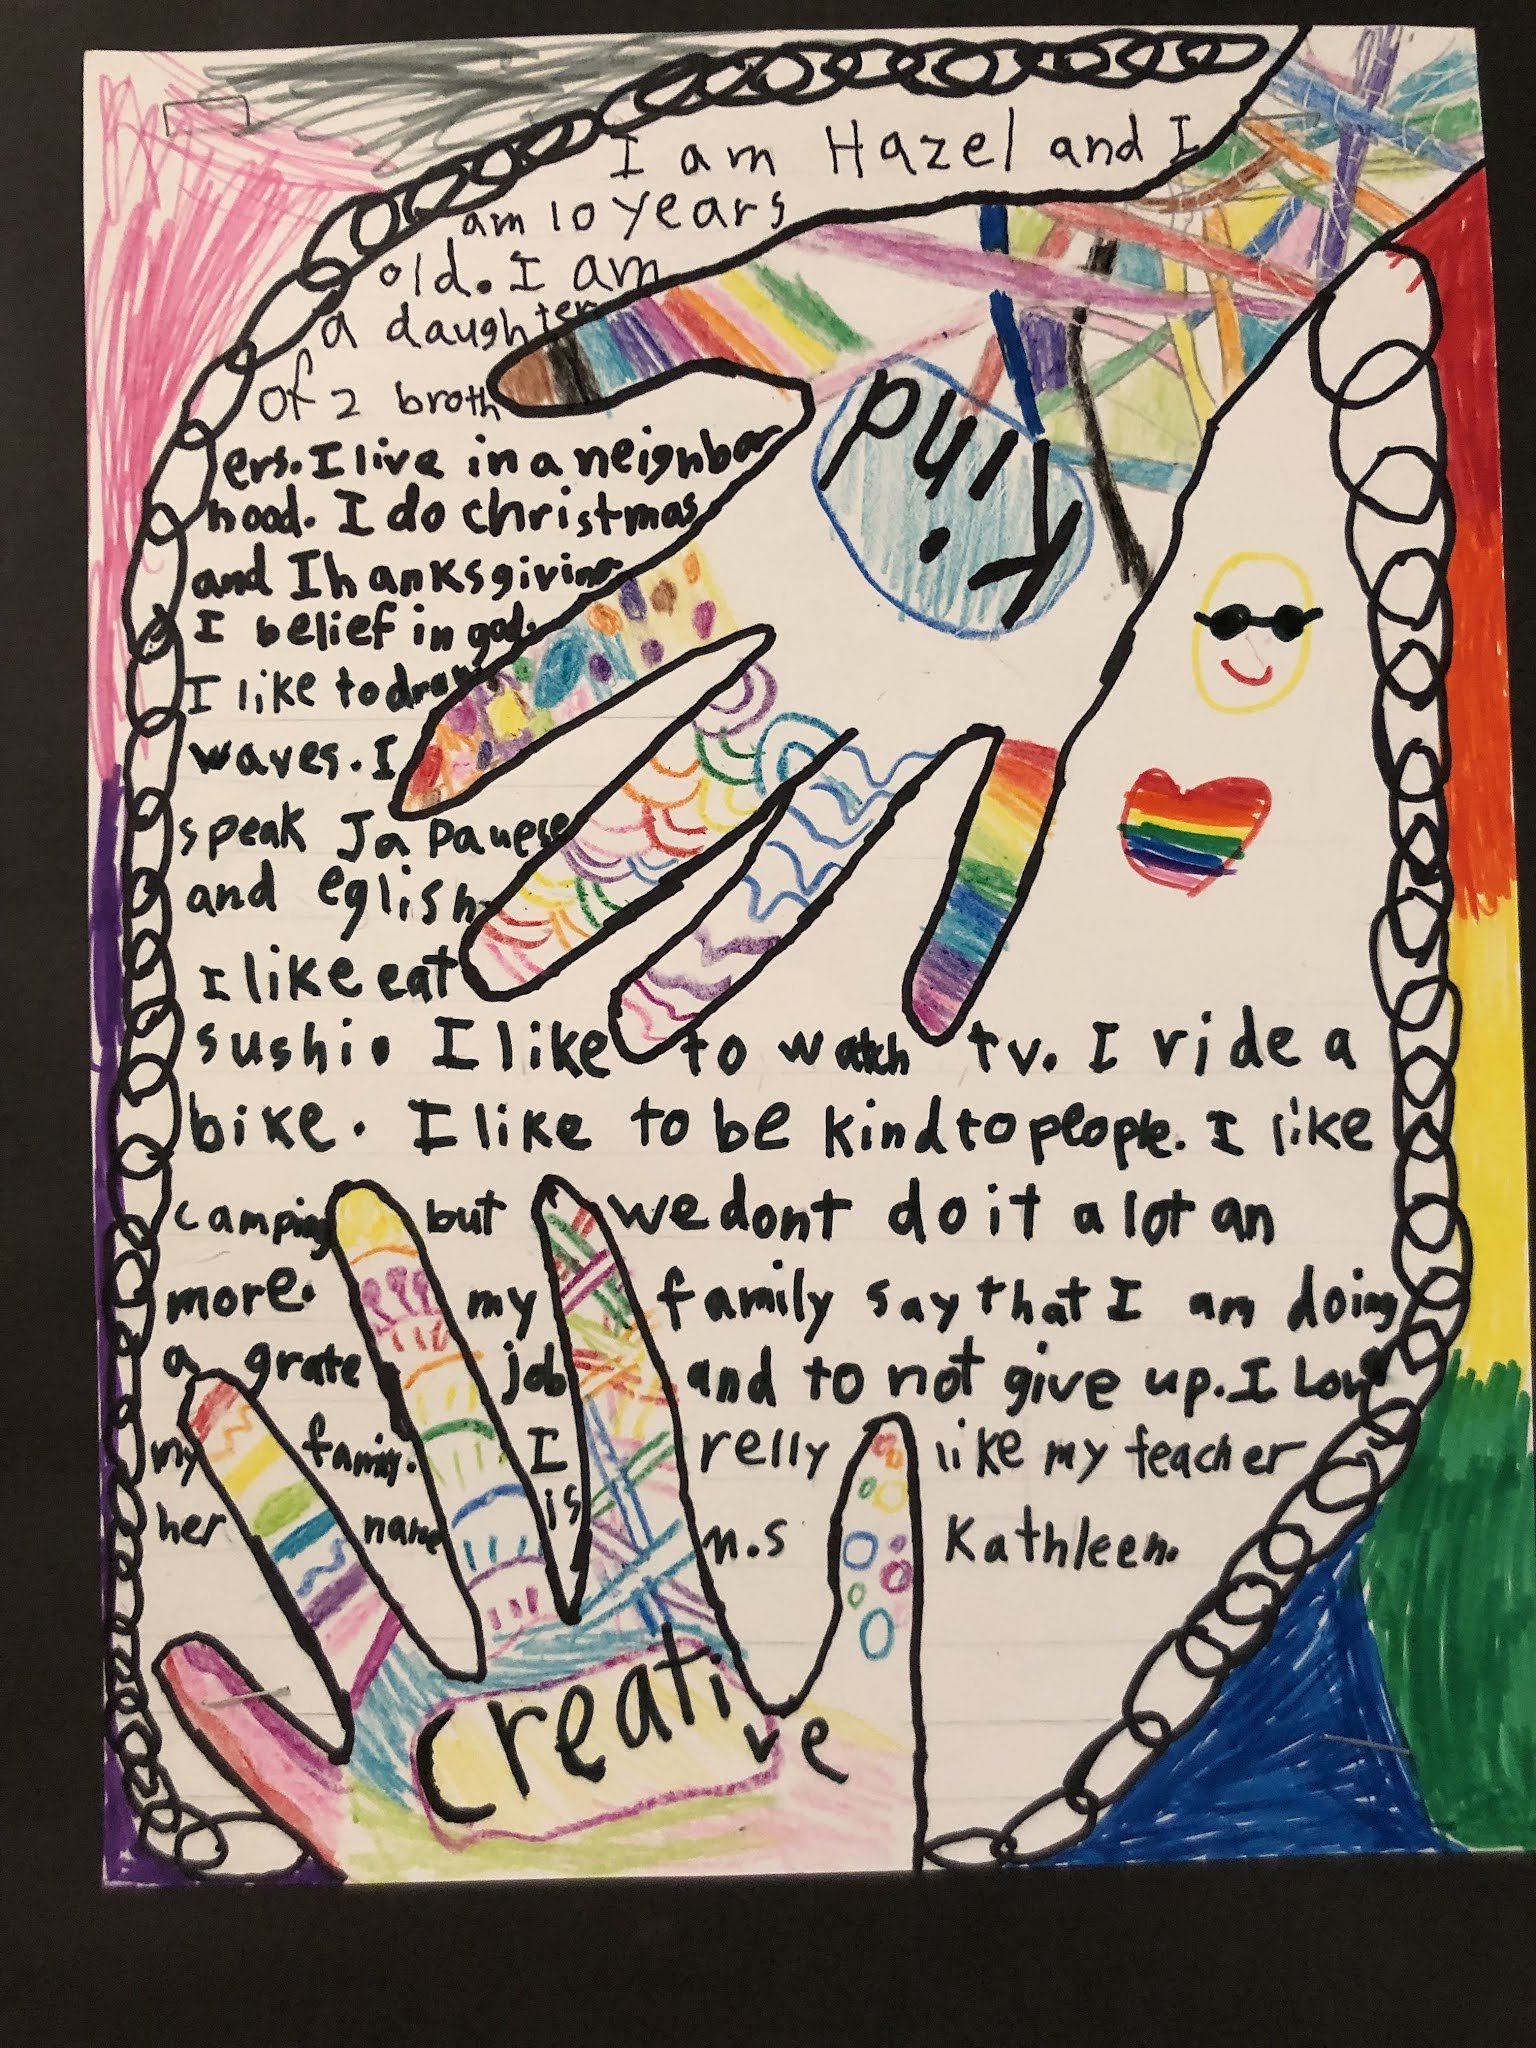 I am Hazel and I
am 10 years
old. I am
a daughter
of 2 broth
ers. I live in a neighbor
hood. I do christmas
and Thanksgiving
I belief in god.
I like to draw
waves. I
speak Japanese
and eglish.
I like eat
sushi. I like to watch tv. I ride a
bike. I like to be kind to people. I like
camping but we dont do it a lot an
more. my family say that I am doing
a grate job and to not give up. I Love
my family. I relly like my teacher
her name is m.s Kathleen.
Kind
Creative